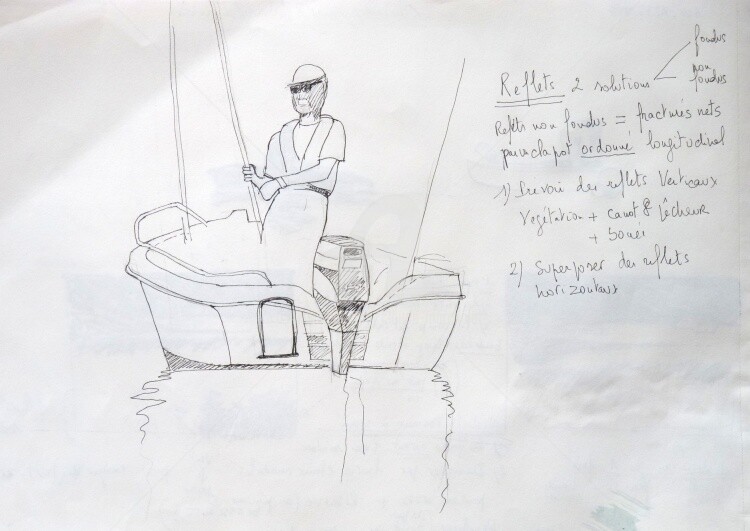 Reflets 2 solutions
fondus
non
fondus
Reflets non fondus = fracturés nets
par clapot ordonné longitudinal
1) Prévoir des reflets Verticaux
Végétation + canot & pêcheur
+ bouée
2) Superposer des reflets
horizontaux